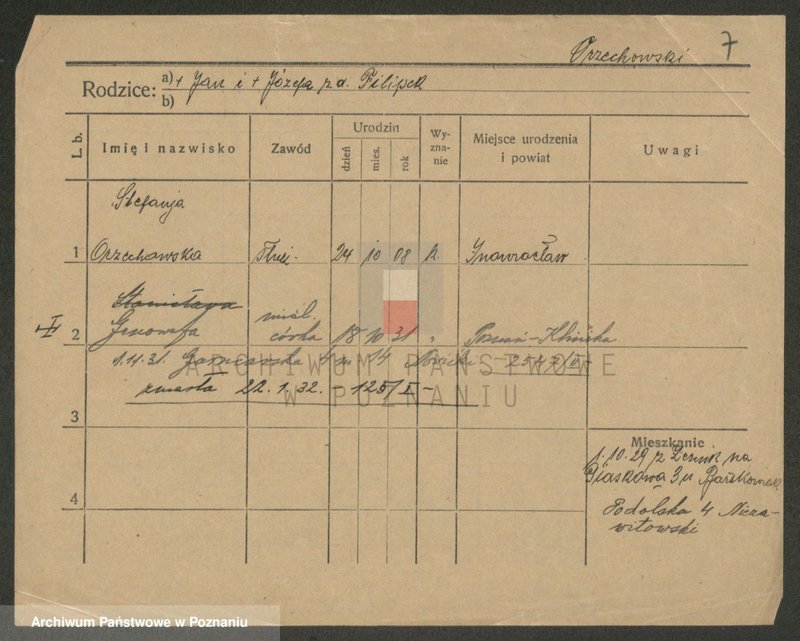 Orzechowski 7
Rodzice: a) + Jan i + Józefa z d. Filipek
b)
L b. Imię i nazwisko Zawód Urodzin dzień mies. rok Wyznanie Miejsce urodzenia i powiat Uwagi
Stefanja
1 Orzechowska służ. 24 10 08 R Inowrocław
Stanisława nieśl.
2 Genowefa córka 18 10 31 " Poznań-Klinika
1.11.31. 14 2517/II
zmarła 22.1.32. - 125/I -
ARCHIWUM PAŃSTWOWE
W POZNANIU
3
Mieszkanie
1.10.29 z na
Piaskowa 3 u
4 Podolska 4 Nieza-
witowski
Archiwum Państwowe w Poznaniu